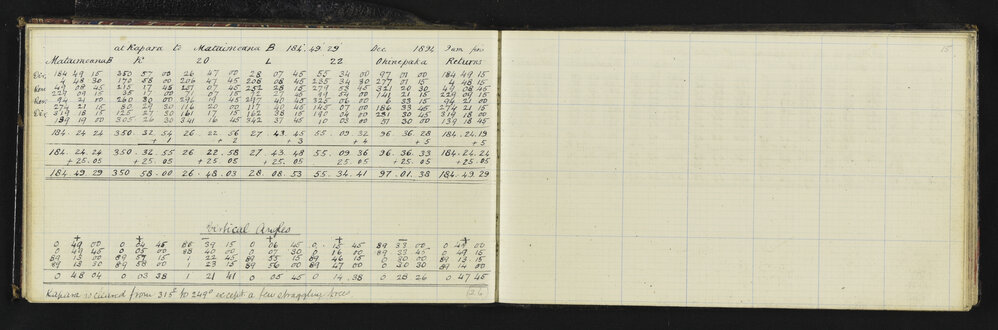 at Kapara to Mataimoana B 184° 49' 29" Dec 1894 Sum for
Mataimoana B K 20 L 22 Ohinepaka Returns
184 49 15 350 57 00 26 47 00 28 07 45 55 34 00 97 01 00 184 49 15
4 48 30 170 58 00 206 47 45 208 08 45 235 34 30 277 01 15 4 48 15
49 08 45 215 17 45 251 07 45 252 28 15 279 53 45 321 20 30 49 08 45
229 09 15 35 17 00 71 07 15 72 27 45 99 54 00 141 21 15 229 09 15
94 21 00 260 30 00 296 19 45 297 40 45 325 06 00 6 33 15 94 21 00
274 21 15 80 29 30 116 20 00 117 40 45 145 07 00 186 33 45 274 21 15
319 18 15 125 27 30 161 17 15 162 38 15 190 04 00 231 30 45 319 18 00
139 19 00 305 26 30 341 16 45 342 37 45 10 03 00 51 30 00 139 18 45
184 . 24 24 350 . 32 54 26 . 22 . 56 27 . 43 . 45 55 . 09 . 32 96 . 36 . 28 184 . 24 . 19
+ 1 + 2 + 3 + 4 + 5 + 5
184 . 24 . 24 350 . 32 . 55 26 . 22 . 58 27 . 43 . 48 55 . 09 . 36 96 . 36 . 33 184 . 24 . 24
+ 25 . 05 + 25 . 05 + 25 . 05 + 25 . 05 25 . 05 + 25 . 05 + 25 . 05
184 . 49 . 29 350 58 . 00 26 . 48 . 03 28 . 08 . 53 55 . 34 . 41 97 . 01 . 38 184 . 49 . 29
Vertical Angles
+ + - + + - +
0 49 00 0 04 45 88 39 15 0 06 45 0 15 45 89 33 00 0 49 00
0 49 45 0 05 00 88 40 00 0 07 30 0 16 00 89 33 45 0 49 15
89 13 00 89 57 15 1 22 45 89 55 15 89 46 15 0 30 00 89 13 15
89 13 30 89 58 00 1 23 15 89 56 00 89 47 00 0 30 30 89 14 00
0 48 04 0 03 38 1 21 41 0 05 45 0 14 . 38 0 28 26 0 47 45
Kapara is cleared from 315° to 249° except a few straggling trees
15